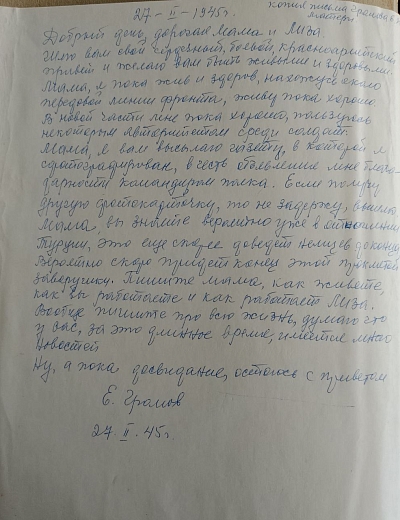 27-II-1945г.
копия письма
матери
Добрый день, дорогие Мама и Лиза.
Шлю вам свой сердечный, боевой, красноармейский
привет и желаю вам быть живыми и здоровыми.
Мама, я пока жив и здоров, нахожусь около
передовой линии фронта, живу пока хорошо.
В новой части мне пока хорошо, пользуюсь
некоторым авторитетом среди солдат.
Мама, я вам высылаю газету, в которой я
сфотографирован, в честь объявления мне благо-
дарности командиром полка. Если получу
другую фотокарточку, то не задержу, вышлю
Мама, вы знаете вероятно уже в отношении
Турции, это еще скорее доведет немцев до конца,
Вероятно скоро придет конец этой проклятой
заверушки. Пишите мама, как живете,
как вы работаете и как работает Лиза.
Вообще пишите про всю жизнь, думаю что
у вас, за это длинное время, имеется много
новостей
Ну, а пока досвидание, остаюсь с приветом
Е. Громов
27. II. 45г.